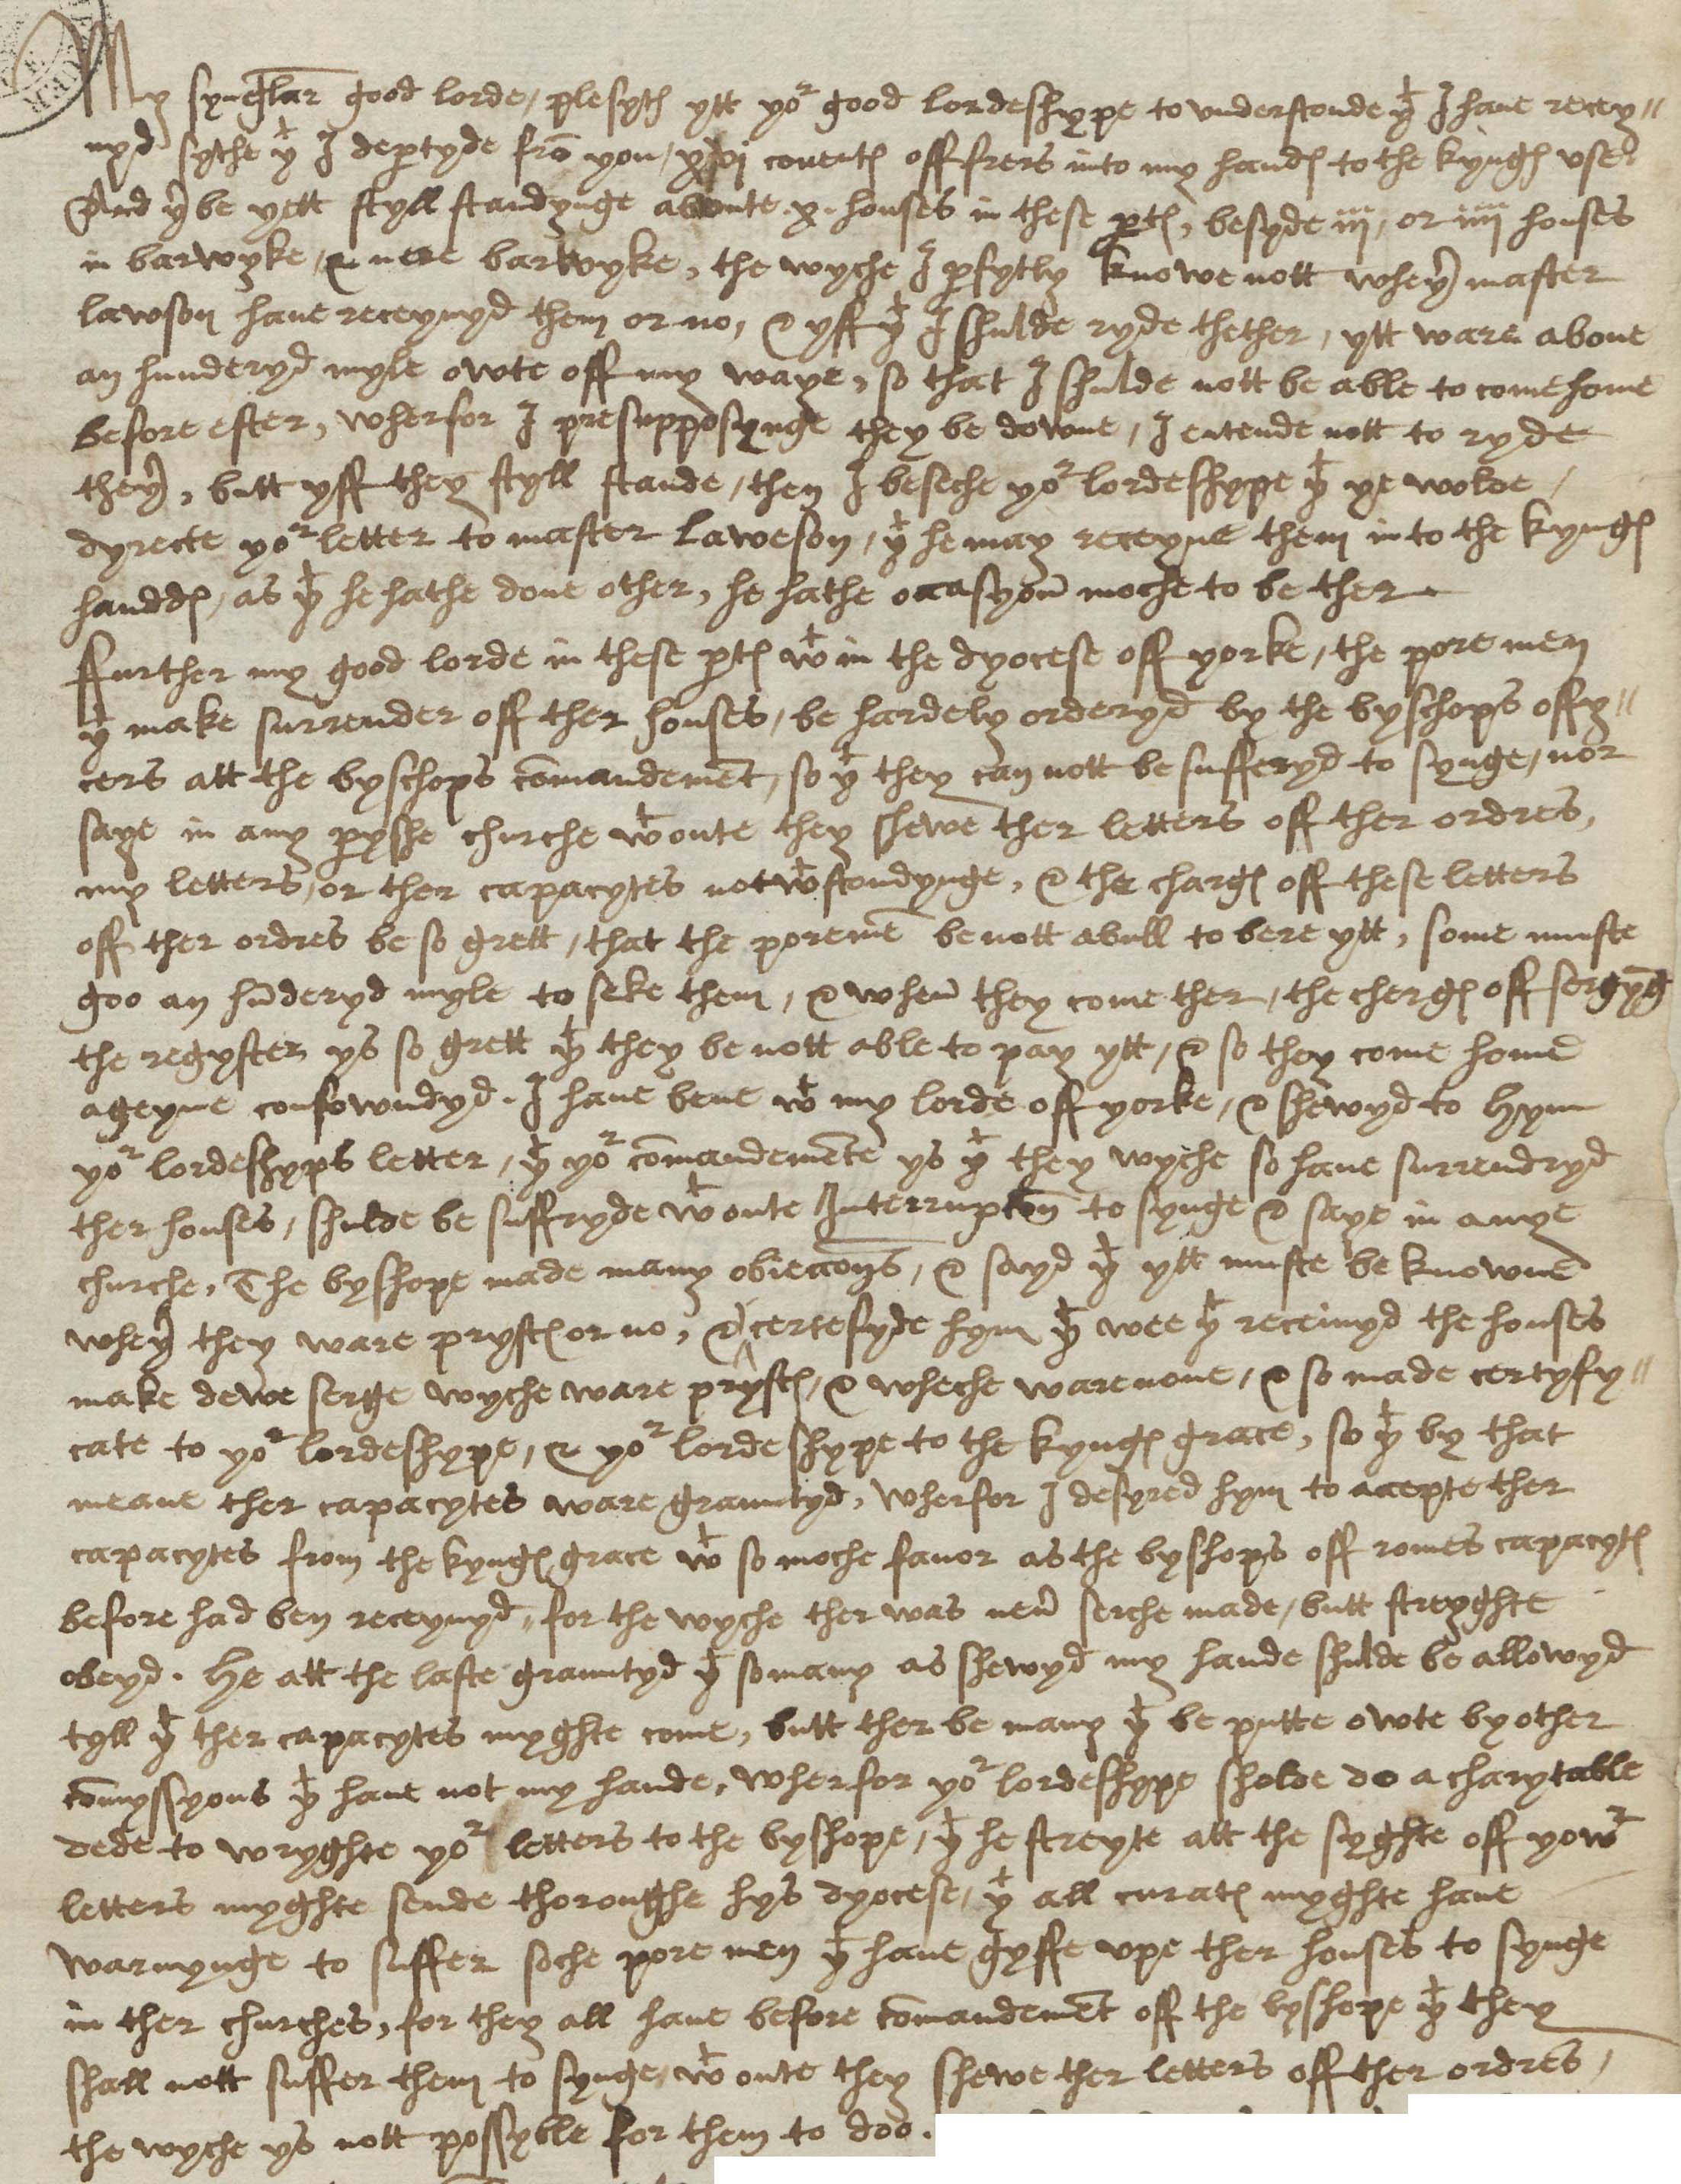 My synglar good lorde, plesyth ytt yor good lordeshype to understonde yt I have recey//
vyd sythe yt I deptyde fro you, xxvi covents off frers into my hands to the kyngs use.
And yr be yett styll standynge aboute .x. houses in these pts, besyde iij, or iiij houses
in barwyke, & nere barwyke, the wyche I pfytly knowe nott wheyr master
lawson have receyvyd them or no, & yff yt I shulde ryde thether, ytt ware above
an hunderyd myle owte off my waye, so that I shulde nott be able to come home
before ester, wherfor I presupposynge they be downe, I entende nott to ryde
theyr, butt yff they styll stande, then I beseche yor lordeshype yt ye wolde
dyrecte yor letter to master Laweson, yt he may receyve them in to the kyngs
handds, as yt he hathe done other, he hathe occasyon moche to be ther
ffurther my good lorde in these pts wt in the dyocese off yorke, the pore men
yt make surrender off ther houses, be hardely orderyd by the byschops offy//
cers att the byschops comandement, so yt they can nott be sufferyd to synge, nor
saye in any pyshe churche wtoute they shewe ther letters off ther ordres,
my letters, or ther capacytes notwtstondynge, & the chargs off these letters
off ther ordres be so grett, that the poreme be nott abull to bere ytt, some muste
goo an huderyd myle to seke them, & when they come ther, the chergs off sergyg
the regyster ys so grett yt they be nott able to pay ytt, & so they come home
ageyne confowndyd. I have bene wt my lorde off yorke, & shewyd to hym
yor lordeshyps letter, yt yor comandemente ys yt they wyche so have surrendryd
ther houses, shulde be suffryde wtoute Interrupcon to synge & saye in anye
churche, The byshope made many obieccons, & sayd yt ytt muste be knowne
wheyr they ware prysts or no, & I certefyde hym yt wee yt receivyd the houses
make dewe serge wyche ware prysts, & wheche ware none, & so made certyfy//
cate to yor lordeshype, & yor lordeshype to the kyngs grace, so yt by that
meane ther capacytes ware grauntyd, wherfor I desyred hym to accepte ther
capacytes from the kyngs grace wt so moche favor as the byshops off romes capacyts
before had ben receyvyd, for the wyche ther was nevr serche made, butt streyghte
obeyd. He att the laste grauntyd yt so many as shewyd my hande shulde be allowyd
tyll yt ther capacytes myghte come, butt ther be many yt be putte owte by other
comyssyons yt have not my hande, wherfor yor lordeshype sholde do a charytable
dede to wryghte yor letters to the byshope, yt he streyte att the syghte off yowr
letters myghte sende thoroughe hys dyocese, yt all curats myghte have
warnynge to suffer soche pore men yt have gyffe upe ther houses to synge
in ther churches, for they all have before comandement off the byshope yt they
shall nott suffer them to synge, wtoute they shewe ther letters off ther ordres,
the wyche ys nott possyble for them to doo.